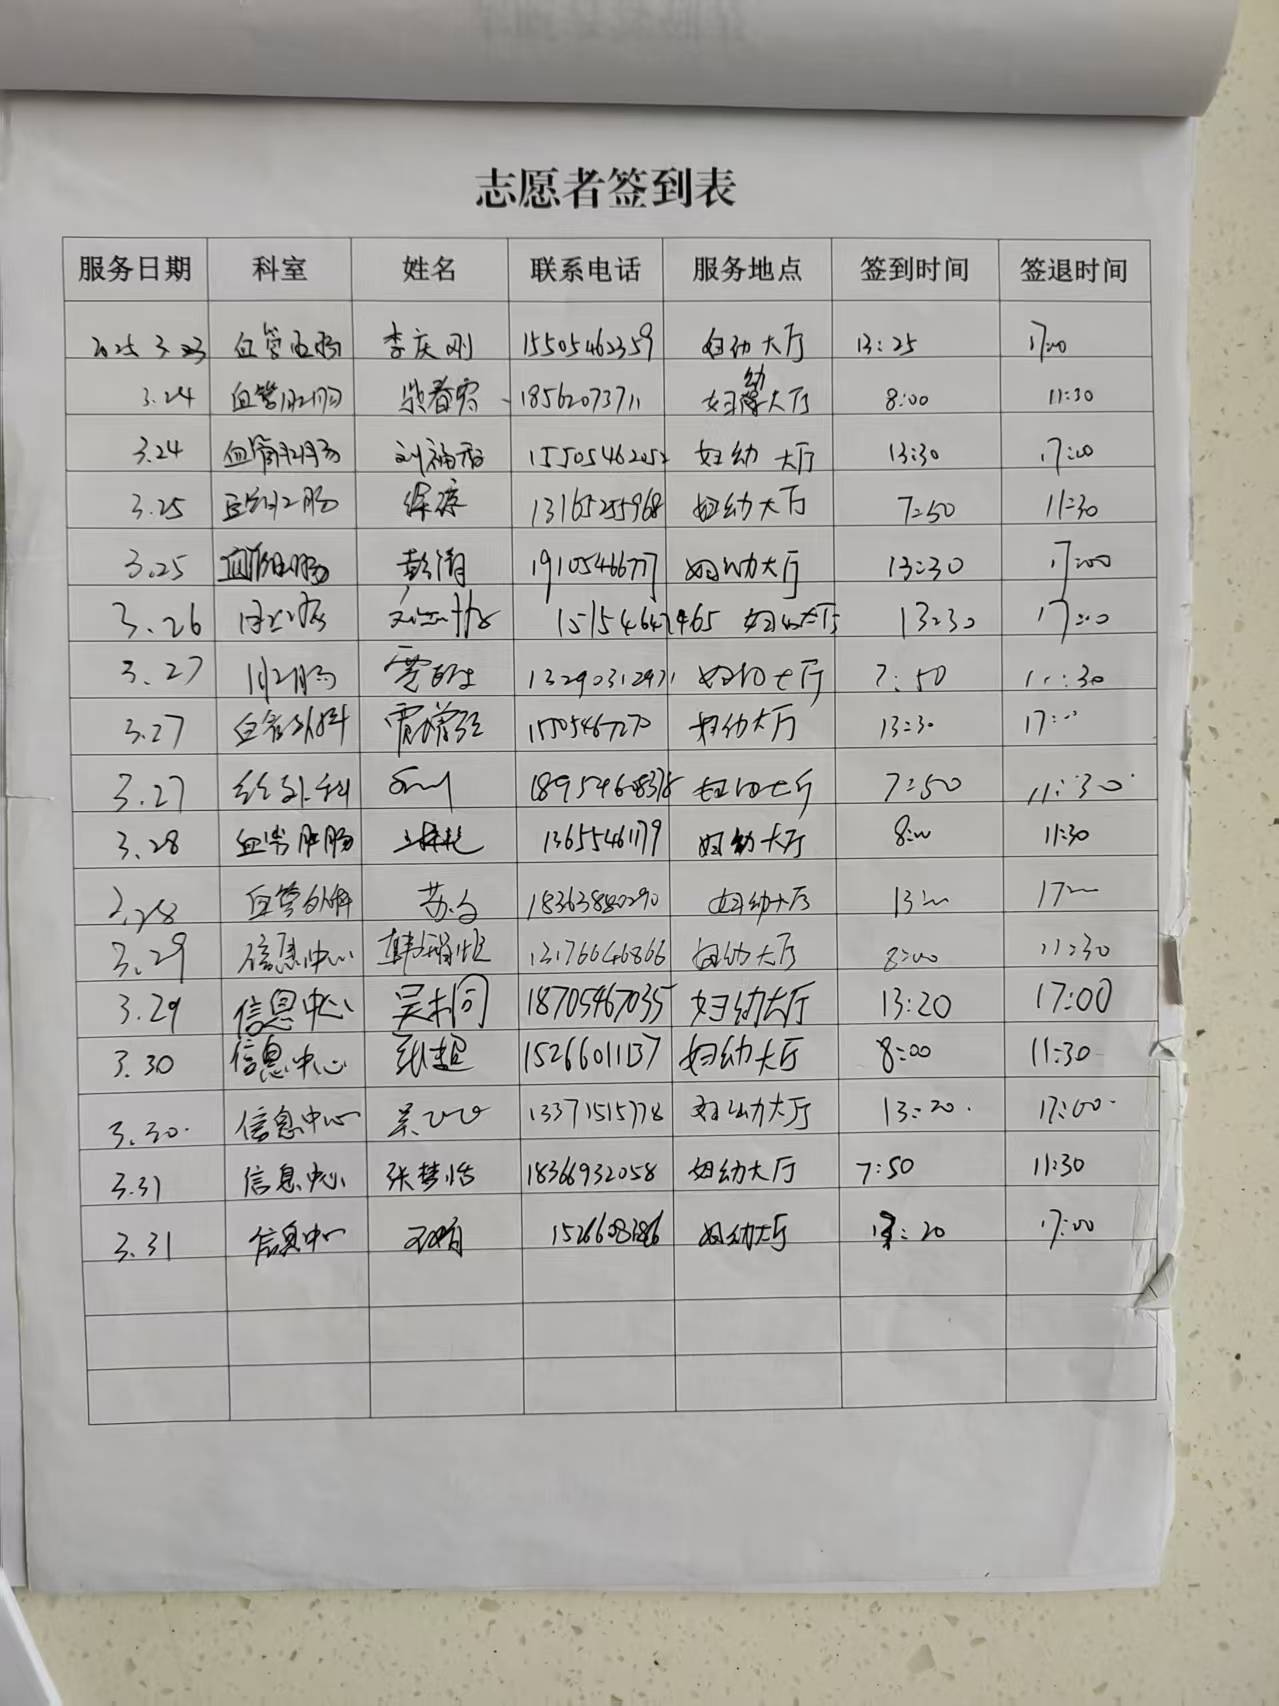 志愿者签到表
服务日期 科室 姓名 联系电话 服务地点 签到时间 签退时间
2025 3.23 血管肛肠 李庆刚 15505462359 妇幼大厅 13:25 17:00
3.24 血管肛肠 18562073711 妇幼大厅 8:00 11:30
3.24 血管肛肠 刘福香 15505462052 妇幼大厅 13:30 17:00
3.25 肛肠 13165255968 妇幼大厅 7:50 11:30
3.25 肛肠 彭清 19105466777 妇幼大厅 13:30 17:00
3.26 妇幼大厅 13:30 17:00
3.27 肛肠 妇幼大厅 7:50 11:30
3.27 血管外科 妇幼大厅 13:30 17:00
3.27 妇幼大厅 7:50 11:30
3.28 血管肛肠 13655461179 妇幼大厅 8:00 11:30
3.28 血管外科 18363880290 妇幼大厅
3.29 信息中心 13176646866 妇幼大厅 8:00 11:30
3.29 信息中心 吴树同 18705467035 妇幼大厅 13:20 17:00
3.30 信息中心 张超 15266011137 妇幼大厅 8:00 11:30
3.30. 信息中心 13371515778 妇幼大厅 13:20. 17:00.
3.31 信息中心 张梦恬 18366932058 妇幼大厅 7:50 11:30
3.31 信息中心 妇幼大厅 13:20 17:00